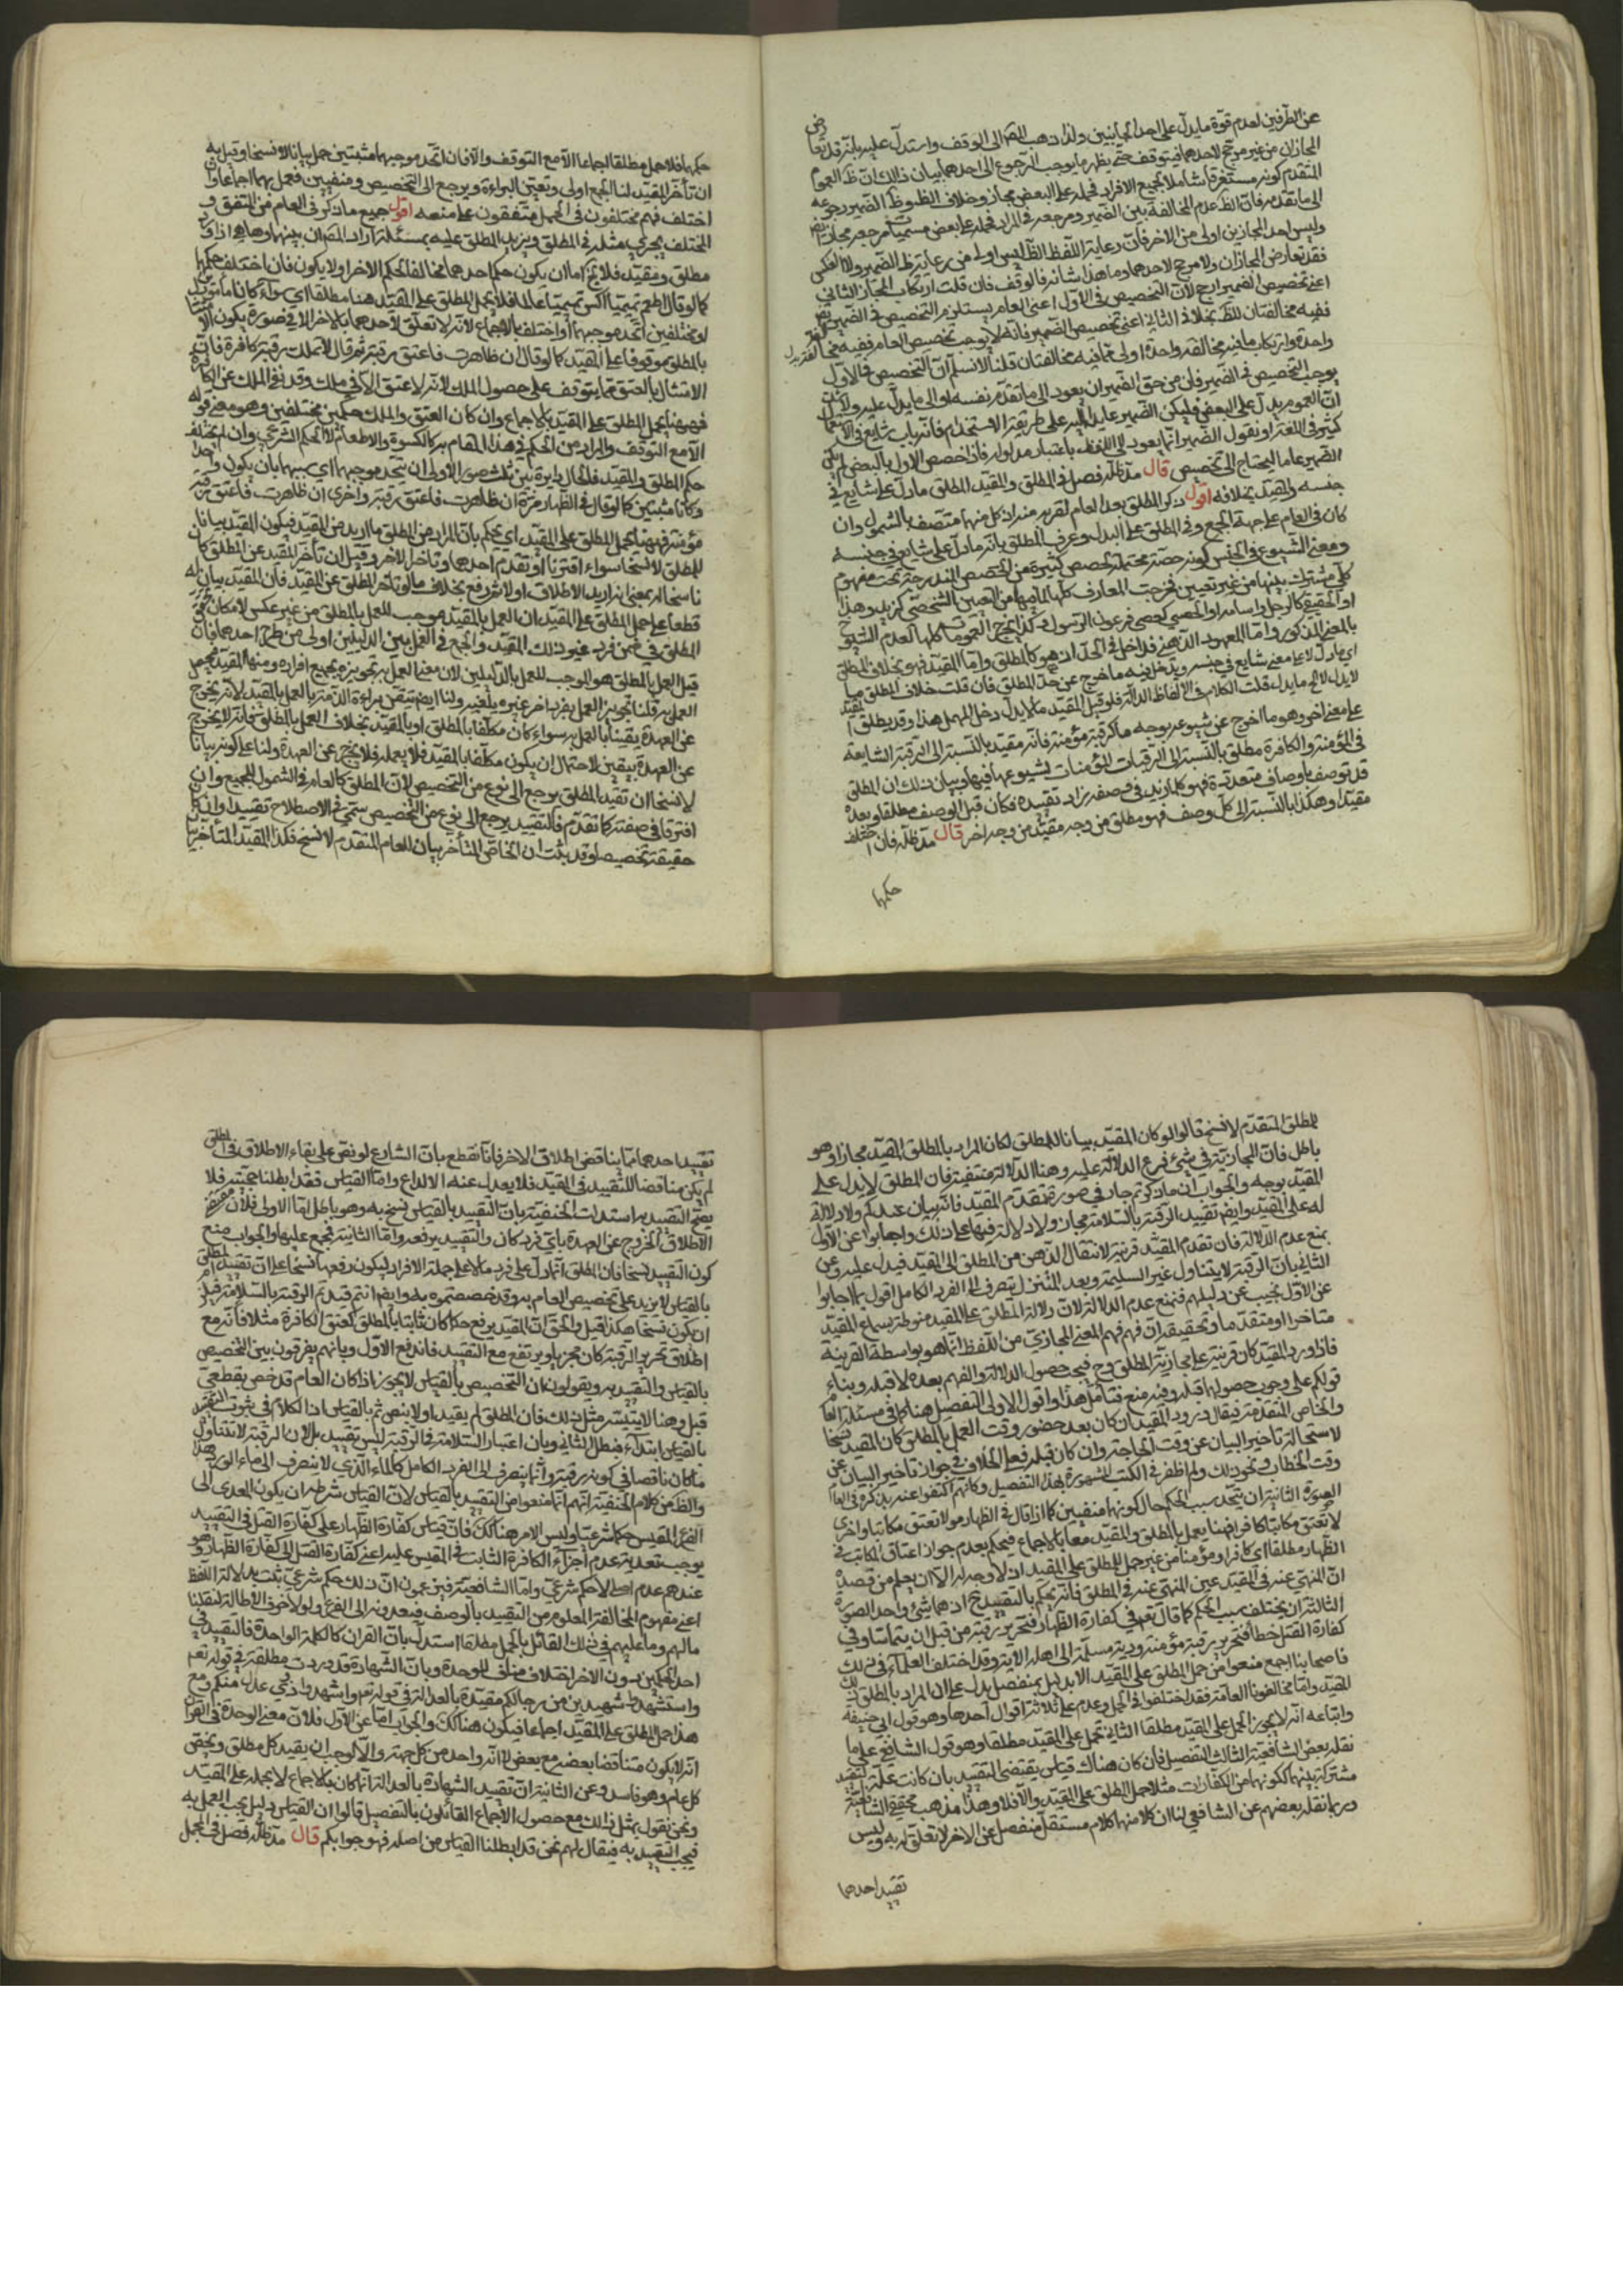 عن الطرفين لعدم قوة ما يدل على احد الجانبين ولذا ذهب المص الى الوقف واستدل عليه بانه قد تعارض
المجازان من غير مرجح لاحدهما فيتوقف حتى يظهر ما يوجب الرجوع الى احدهما بيان ذلك ان ظ العموم
المتقدم كونه مستغرقا شاملا لجميع الافراد فحمله على البعض مجاز وخلاف الظ وظ الضمير رجوعه
الى ما تقدمه فان الظ عدم المخالفة بين الضمير ومرجعه في المراد فحمله على بعض مسميات مرجعه مجاز
وليس احد المجازين اولى من الاخر فان رعاية اللفظ الظ ليس اولى من رعاية ظ الضمير ولا العكس
فقد تعارض المجازان ولا مرجح لاحدهما وما هذا شانه فالوقف فان قلت ارتكاب المجاز الثاني
اعني تخصيص الضمير ارجح لان التخصيص في الاول اعني العام يستلزم التخصيص في الضمير
ففيه مخالفتان للظ بخلاف الثاني اعني تخصيص الضمير فانه لا يوجب تخصيص العام ففيه مخالفة
واحدة وارتكاب ما فيه مخالفة واحدة اولى مما فيه مخالفتان قلنا لا نسلم ان التخصيص في الاول
يوجب التخصيص في الضمير فان من حق الضمير ان يعود الى ما تقدم نفسه او الى ما يدل عليه ولا
ان العموم يدل على البعض فليكن الضمير عايدا اليه على طريقة الاستخدام فانه باب شايع في
كثير في اللغة او نقول الضمير انما يعود الى اللفظ باعتبار مدلوله فاذا خصص الاول بالبعض لم يكن
الضمير عاما ليحتاج الى تخصيص قال مد ظله فصل في المطلق والمقيد المطلق ما دل على شايع في
جنسه والمقيد بخلافه اقول ذكر المطلق بعد العام لقربه منه اذ كل منهما متصف بالشمول وان
كان في العام على جهة الجمع وفي المطلق على البدل وعرف المطلق بانه ما دل على شايع في جنسه
ومعنى الشيوع في الجنس كونه حصة محتملة لحصص كثيرة من الحصص المندرجة تحت مفهوم
كلي مشترك بينها من غير تعيين فخرجت المعارف كلها لما فيها من التعيين الشخصي كزيد وهذا
او الحقيقي كالرجل واسامة او الحصي كعصى فرعون الرسول وكذا يخرج العمومات كلها لعدم الشيوع
بالمعنى المذكور واما المعهود الذهني فداخل في الحد اذ هو كالمطلق واما المقيد فهو بخلاف المطلق
اي ما دل لا على معنى شايع في جنسه ويدخل فيه ما خرج عن حد المطلق فان قلت خلاف المطلق ما
لا يدل لا ما يدل قلت الكلام في الالفاظ الدالة فلو قيل المقيد ما لا يدل دخل المهمل هذا وقد يطلق المقيد
على معنى اخر وهو ما اخرج عن شيوعه بوجه ما كرقبة مؤمنة فانه مقيد بالنسبة الى الرقبة الشايعة
في المؤمنة والكافرة مطلق بالنسبة الى الرقبات المؤمنات لشيوعها فيها وبيان ذلك ان المطلق
قد توصف باوصاف متعددة فهو كلما زيد في وصفه زاد تقييده فكان قبل الوصف مطلقا وبعده
مقيدا وهكذا بالنسبة الى كل وصف فهو مطلق من وجه مقيد من وجه اخر قال مد ظله فان اختلف
حكمهما
حكمهما فلا حمل مطلقا اجماعا الا مع التوقف والا فان اتحد موجبهما مثبتين حمل بيانا لا نسخا وقيل به
ان تأخر المقيد لنا الجمع اولى ويتعين البراءة ويرجع الى التخصيص ومنفيين فعمل بهما اجماعا وان
اختلف فهم مختلفون في الحمل متفقون على منعه اقول جميع ما ذكر في العام من المتفق و
المختلف يجري مثله في المطلق ويزيد المطلق عليه بمسئلة اراد المص ان يبينها وها هي اذا ورد
مطلق ومقيد فلا يخ اما ان يكون حكم احدهما مخالفا لحكم الاخر او لا يكون فان اختلف حكمهما
كما لو قال اطعم تميميا اكس تميميا عالما فلا يحمل المطلق على المقيد هنا مطلقا اي سواء كانا مامورين
او مختلفين اتحد موجبهما او اختلف بالاجماع لانه لا تعلق لاحدهما بالاخر الا في صورة يكون
بالمطلق موقوفا على المقيد كما لو قال ان ظاهرت فاعتق رقبة ثم قال لا تملك رقبة كافرة فان
الامتثال بالعتق مما يتوقف على حصول الملك لانه لا عتق الا في ملك وقد نفى الملك عن الكافرة
فههنا يحمل المطلق على المقيد بالاجماع وان كان العتق والملك حكمين مختلفين وهو معنى قوله
الا مع التوقف والمراد من الحكم في هذا المقام هو كالكسوة والاطعام لا الحكم الشرعي وان لم يختلف
حكم المطلق والمقيد فلحال دايرة بين ثلث صور الاولى ان يتحد موجبهما اي سببهما بان يكون واحدا
وكانا مثبتين كما لو قال في الظهار مرة ان ظاهرت فاعتق رقبة واخرى ان ظاهرت فاعتق رقبة
مؤمنة فههنا يحمل المطلق على المقيد اي يحكم بان المراد من المطلق ما اريد من المقيد فيكون المقيد بيانا
للمطلق لا نسخا سواء اقترنا او تقدم احدهما وتاخر الاخر وقيل ان تأخر المقيد عن المطلق كان
ناسخا له بمعنى انه اريد الاطلاق اولا ثم رفع بخلاف ما لو تاخر المطلق عن المقيد فان المقيد بيان له
قطعا على حمل المطلق على المقيد ان العمل بالمقيد موجب للعمل بالمطلق من غير عكس لامكان
المطلق في ضمن فرد غير ذلك المقيد والجمع في العمل بين الدليلين اولى من طرح احدهما فان
قيل العمل بالمطلق هو الموجب للعمل بالدليلين لان معنى العمل به تجويزه بجميع افراده ومنها المقيد
العمل به قلنا تجويز العمل بفرد اخر غيره يلغيه ولنا ايضا تيقن براءة الذمة بالعمل بالمقيد لانه يخرج
عن العهدة يقينا بالعمل به سواء كان مكلفا بالمطلق او بالمقيد بخلاف العمل بالمطلق فانه لا يخرج
عن العهدة بيقين لاحتمال ان يكون مكلفا بالمقيد فلا يعمله فلا يخرج عن العهدة ولنا على كونه بيانا
لا نسخا ان تقيد المطلق يرجع الى نوع من التخصيص لان المطلق كالعام في الشمول للجميع وان
افترقا في صفته كما تقدم فالتقييد يرجع الى نوع من التخصيص يسمى في الاصطلاح تقييدا وان كان
حقيقة تخصيصا وقد ثبت ان الخاص المتأخر بيان للعام المتقدم لا نسخ فكذا المقيد المتأخر
للمطلق المتقدم لا نسخ قالوا لو كان المقيد بيانا للمطلق لكان المراد بالمطلق المقيد مجازا وهو
باطل فان المجازية في شيئ فرع الدلالة عليه وهنا الدلالة منتفية فان المطلق لا يدل على
المقيد بوجه والجواب ان ما ذكرتم جار في صورة تقدم المقيد فانه بيان عندكم ولا دلالة
له على المقيد وايضا تقييد الرقبة بالسلامة مجاز ولا دلالة فيها على ذلك واجابوا عن الاول
بمنع عدم الدلالة فان تقدم المقيد قرينة لانتقال الذهن من المطلق الى المقيد فيدل عليه وعن
الثاني بان الرقبة لا يتناول غير السليمة وبعد التنزل يصرف الى الفرد الكامل اقول بما اجابوا
عن الاول نجيب عن دليلهم فنمنع عدم الدلالة لان دلالة المطلق على المقيد منوطة بسماع المقيد
متاخرا او متقدما وتحقيقه ان فهم المعنى المجازي من اللفظ انما هو بواسطة القرينة
فاذا ورد المقيد كان قرينة على مجازية المطلق وح فيجب حصول الدلالة والفهم بعده لا قبله وبناء
قولكم على وجوب حصولها قبله وفيه منع فتأمل هذا واقول الاولى التفصيل هنا كما في مسئلة العام
والخاص المتقدمة فيقال ورود المقيد ان كان بعد حضور وقت العمل بالمطلق كان المقيد نسخا
لاستحالة تاخير البيان عن وقت الحاجة وان كان قبله فعلى الخلاف في جواز تاخير البيان عن
وقت الخطاب ونحو ذلك ولم اظفر في الكتب المشهورة بهذا التفصيل وكانهم اكتفوا عنه بذكره في العام
الصورة الثانية ان يتحد سبب الحكم حال كونهما منفيين كما اذا قال في الظهار مرة لا تعتق مكاتبا واخرى
لا تعتق مكاتبا كافرا فههنا يعمل بالمطلق والمقيد معا بالاجماع فيحكم بعدم جواز اعتاق المكاتب في
الظهار مطلقا اي كافرا او مؤمنا من غير حمل المطلق على المقيد اذ لا وجه له الا ان يعلم من قصده
ان المنهي عنه في المقيد عين المنهي عنه في المطلق فانه يحكم بالتقييد ح اذ هما شئ واحد الصورة
الثالثة ان يختلف سبب الحكم كما قال تعم في كفارة الظهار فتحرير رقبة من قبل ان يتماسا وفي
كفارة القتل خطأ فتحرير رقبة مؤمنة ودية مسلمة الى اهله الاية وقد اختلف العلماء في ذلك
فاصحابنا اجمع منعوا من حمل المطلق على المقيد الا بدليل منفصل يدل على ان المراد بالمطلق ذلك
المقيد واما مخالفونا العامة فقد اختلفوا في الحمل وعدمه على ثلاثة اقوال احدها وهو قول ابي حنيفة
واتباعه انه لا يجوز الحمل على المقيد مطلقا الثاني يحمل على المقيد مطلقا وهو قول الشافعي على ما
نقله بعض الشافعية الثالث التفصيل فان كان هناك قياس يقتضي التقييد بان كانت علة التقييد
مشتركة بينهما لكونهما من الكفارات مثلا حمل المطلق على المقيد والا فلا وهذا مذهب محققي الشافعية
وربما نقله بعضهم عن الشافعي لنا ان كلا منهما كلام مستقل منفصل عن الاخر لا تعلق له به وليس
تقييد احدهما
تقييد احدهما مما يناقض اطلاق الاخر فانا نقطع بان الشارع لو نص على بقاء الاطلاق في المطلق
لم يكن مناقضا للتقييد في المقيد فلا يعدل عنه الا لداع واما القياس فقد ابطلنا حجيته فلا
يصح التقييد به استدلت الحنفية بان التقييد بالقياس نسخ به وهو باطل اما الاولى فلان
الاطلاق الخروج عن العهدة باي فرد كان والتقييد يرفعه واما الثانية فمجمع عليها والجواب منع
كون التقييد نسخا فان المطلق انما دل على فرد ما لا على جملة الافراد ليكون رفعها نسخا على ان تقييد المطلق
بالقياس لا يزيد على تخصيص العام به وقد خصصتموه به وايضا انتم قيدتم الرقبة بالسلامة فيلزم
ان يكون نسخا هكذا قيل والحق ان المقيد يرفع حكما كان ثابتا بالمطلق كعتق الكافرة مثلا فانه مع
اطلاق تحرير الرقبة كان مجزيا ويرتفع مع التقييد فاندفع الاول وبانهم يفرقون بين التخصيص
بالقياس والتقييد به ويقولون ان التخصيص بالقياس لا يجوز الا اذا كان العام قد خص بقطعي
قبل وهنا لا يتيسر مثل ذلك فان المطلق لم يقيد اولا بنص ثم بالقياس اذ الكلام في ثبوت التقييد
بالقياس ابتداء فبطل الثاني وبان اعتبار السلامة في الرقبة ليس تقييد بل لان الرقبة لا تتناول
ما كان ناقصا في كونه رقبة وانما ينصرف الى الفرد الكامل كالماء الذي لا ينصرف الى ماء الورد هذا
والظ من كلام الحنفية انهم انما منعوا من التقييد بالقياس لان القياس شرطه ان يكون المعدى الى
الفرع المقيس حكما شرعيا وليس الامر هنا كك فان قياس كفارة الظهار على كفارة القتل في التقييد
يوجب تعدية عدم اجزاء الكافرة الثابت في المقيس عليه اعني كفارة القتل الى كفارة الظهار وهو
عندهم عدم اصلي لا حكم شرعي واما الشافعية فيزعمون ان ذلك حكم شرعي ثبت بدلالة اللفظ
اعني مفهوم المخالفة المعلوم من التقييد بالوصف فيعدونه الى الفرع ولولا خوف الاطالة لنقلنا
مالهم وما عليهم في ذلك القائل بالحمل مطلقا استدل بان القران كالكلمة الواحدة فالتقييد في
احد الحكمين بدون الاخر اختلاف مناف للوحدة وبان الشهادة قد وردت مطلقة في قوله تعم
واستشهدوا شهيدين من رجالكم مقيدة بالعدالة في قوله تعم واشهدوا ذوي عدل منكم ومع
هذا حمل المطلق على المقيد اجماعا فيكون هنا كك والجواب اما عن الاول فلان معنى الوحدة في القران
انه لا يكون متناقضا بعضه مع بعض لا انه واحد من كل جهة والا لوجب ان يقيد كل مطلق ويخص
كل عام وهو فاسد وعن الثانية ان تقييد الشهادة بالعدالة انما كان بالاجماع لا بحمله على المقيد
ونحن نقول بمثل ذلك مع حصول الاجماع القائلون بالتفصيل قالوا ان القياس دليل يجب العمل به
فيجب التقييد به فيقال لهم نحن قد ابطلنا القياس من اصله فهو جوابكم قال مد ظله فصل في المجمل